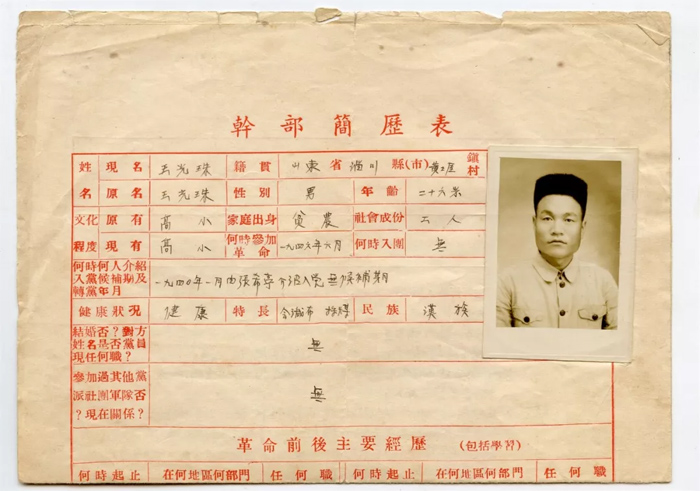 幹部簡歷表
姓 現名 王光珠 籍貫 山東省淄川縣(市) 鎮村
名 原名 王光珠 性別 男 年齡 二十六岁
文化 原有 高小 家庭出身 貧農 社會成份 工人
程度 現有 高小 何時參加革命 一九四六年六月 何時入團 無
何時何人介紹
入黨候補期及 一九四〇年一月由張希 介绍入党無候補期
轉黨年月
健康狀況 健康 特長 民族 漢族
結婚否?對方
姓名是否黨員 無
現任何職?
參加過其他黨
派社團軍隊否 無
?現在關係?
革命前後主要經歷 (包括學習)
何時起止 在何地區何部門 任何職 何時起止 在何地區何部門 任何職